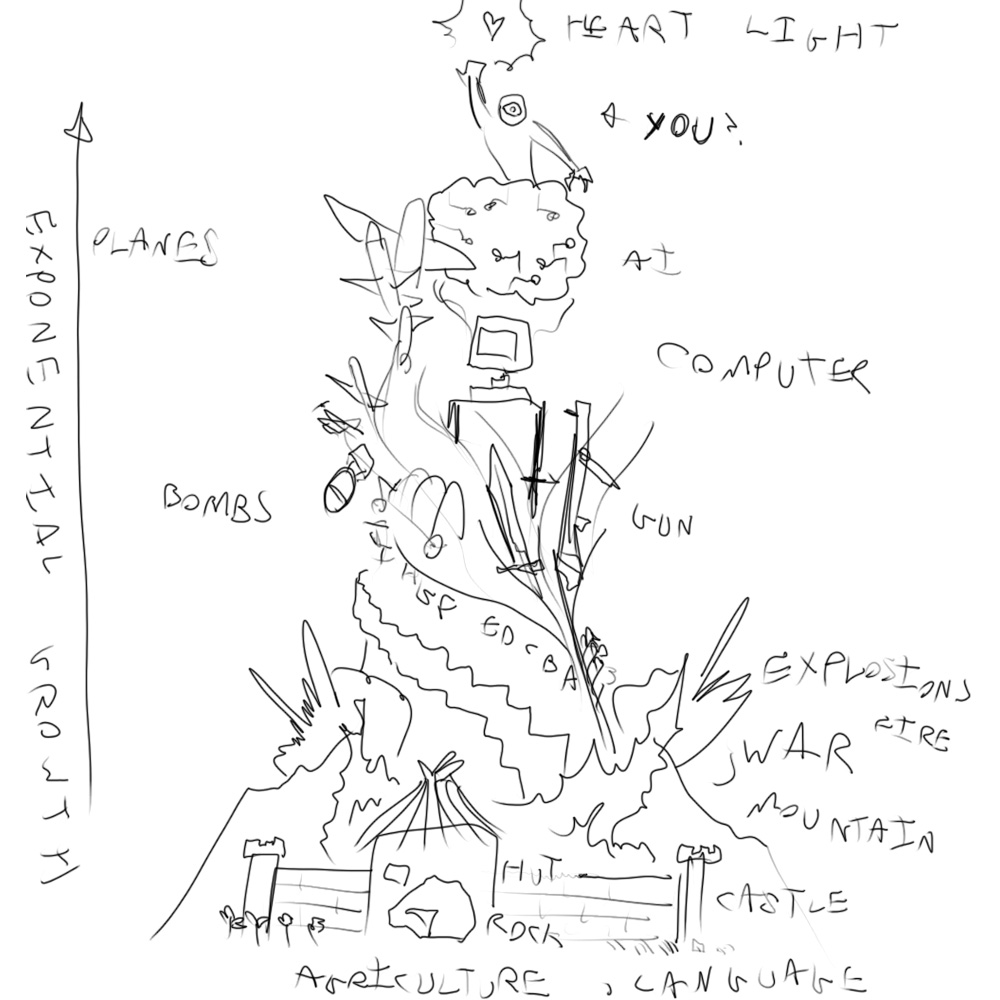 HEART LIGHT
YOU?
PLANES
AI
EXPONENTIAL GROWTH
COMPUTER
BOMBS
GUN
E D C B A
EXPLOSIONS
FIRE
WAR
MOUNTAIN
HUT
CASTLE
ROCK
AGRICULTURE, LANGUAGE